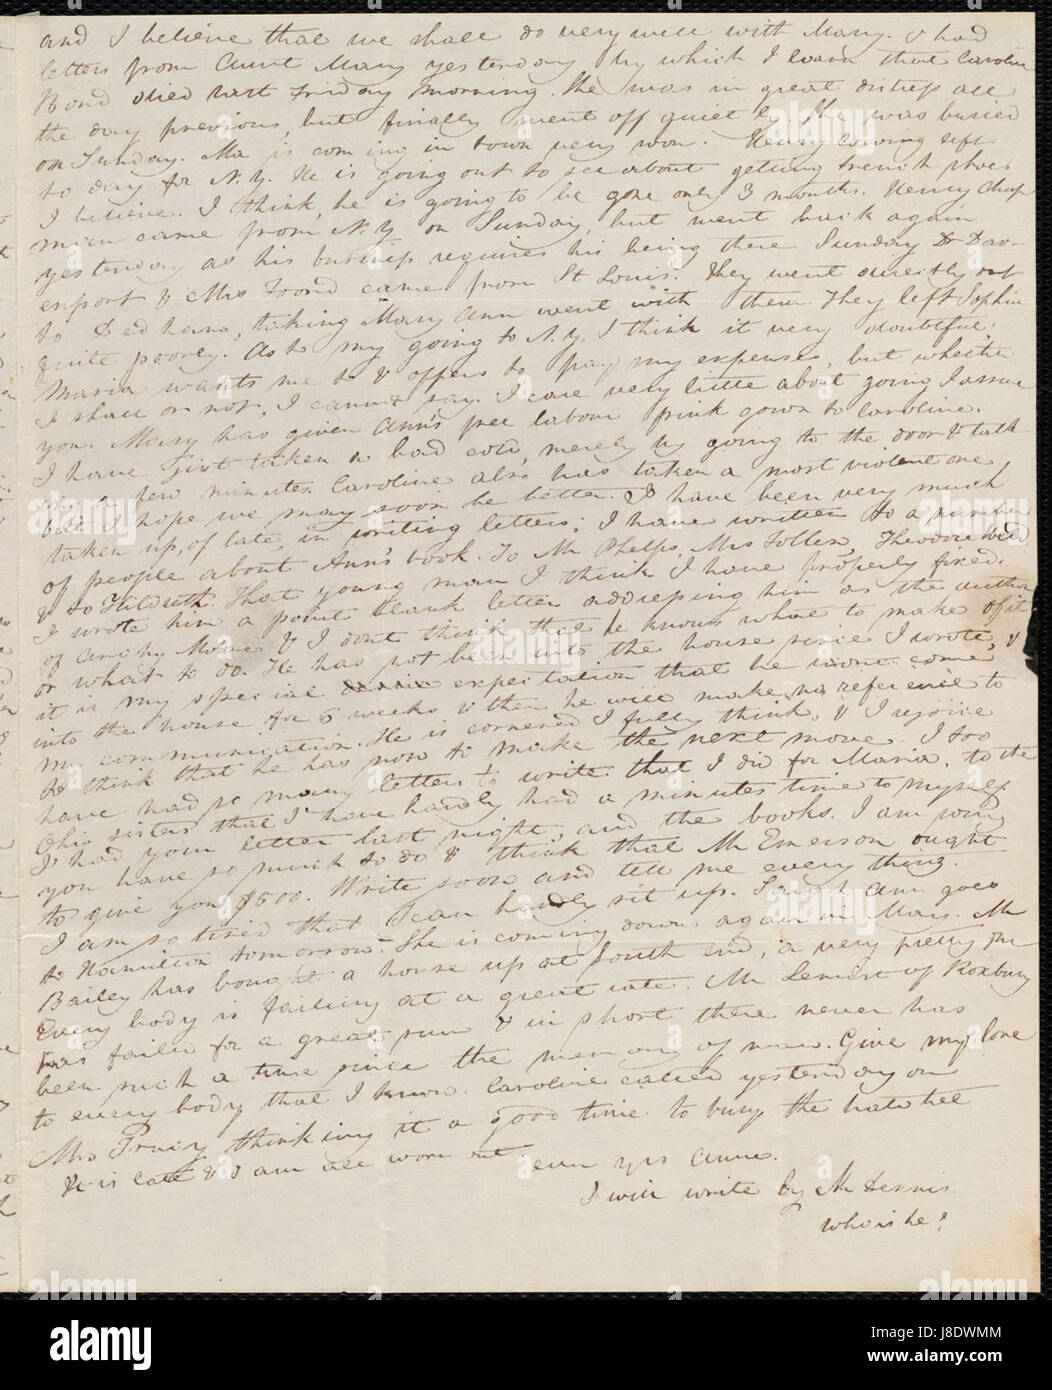 and I believe that we shall do very well with Mary. I had
letters from Aunt Mary yesterday by which I learn that Caroline
Bond died last Friday morning. She was in great distress all
the day previous, but finally went off quietly. She was buried
on Sunday. Ma is coming in town very soon. Henry left
to day for N.Y. He is going out to see about getting French shoes
I believe. I think, he is going to be gone only 3 months. Henry Chap
man came from N.Y. on Sunday, but went back again
yesterday as his business requires his being there Sunday Dr Dav-
enport & Mrs came from St Louis. They went directly out
to Dedham, taking Mary Ann went with them. They left Sophia
quite poorly. As to my going to N.Y. I think it very doubtful.
Maria wants me to & offers to pay my expenses, but whether
I shall or not, I cannot say. I care very little about going I assure
you. Mary has given Ann's free labour pink gown to Caroline.
I have just taken a bad cold, merely by going to the door & talk
ing a few minutes. Caroline also has taken a most violent one
but I hope we may soon be better. I have been very much
taken up, of late, in writing letters; I have written to a number
of people about Ann's book. To Mr Phelps, Mrs Follen, Theodore Weld
& to Hildreth. That young man I think I have properly fixed.
I wrote him a point blank letter addressing him as the author
of Archy Moore & I dont think that he knows what to make of it
or what to do. He has not been into the house since I wrote, &
it is my special expectation that he wont come
into the house for 6 weeks & then he will make no reference to
my communication. He is cornered I fully think, & I rejoice
to think that he has now to make the next move. I too
have had so many letters to write that I did for Maria, to the
Ohio sisters that I have hardly had a minutes time to myself
I had your letter last night, and the books. I am sorry
you have so much to do & think that Mr Emerson ought
to give you $500. Write soon and tell me every thing.
I am so tired that I can hardly sit up. Sarah Ann goes
to Hamilton tomorrow. She is coming down again in May. Mr
Bailey has bought a house up at South end, a very pretty one
Every body is failing at a great rate. Mr of Roxbury
has failed for a great sum & in short there never has
been such a time since the memory of man. Give my love
to every body that I know. Caroline called yesterday on
Mrs Tracy thinking it a good time to bury the hatchet
It is late & I am all worn out
ever yrs Anne.
I will write by Mr Dennis.
who is he?
alamy
Image ID: J8DWMM
www.alamy.com